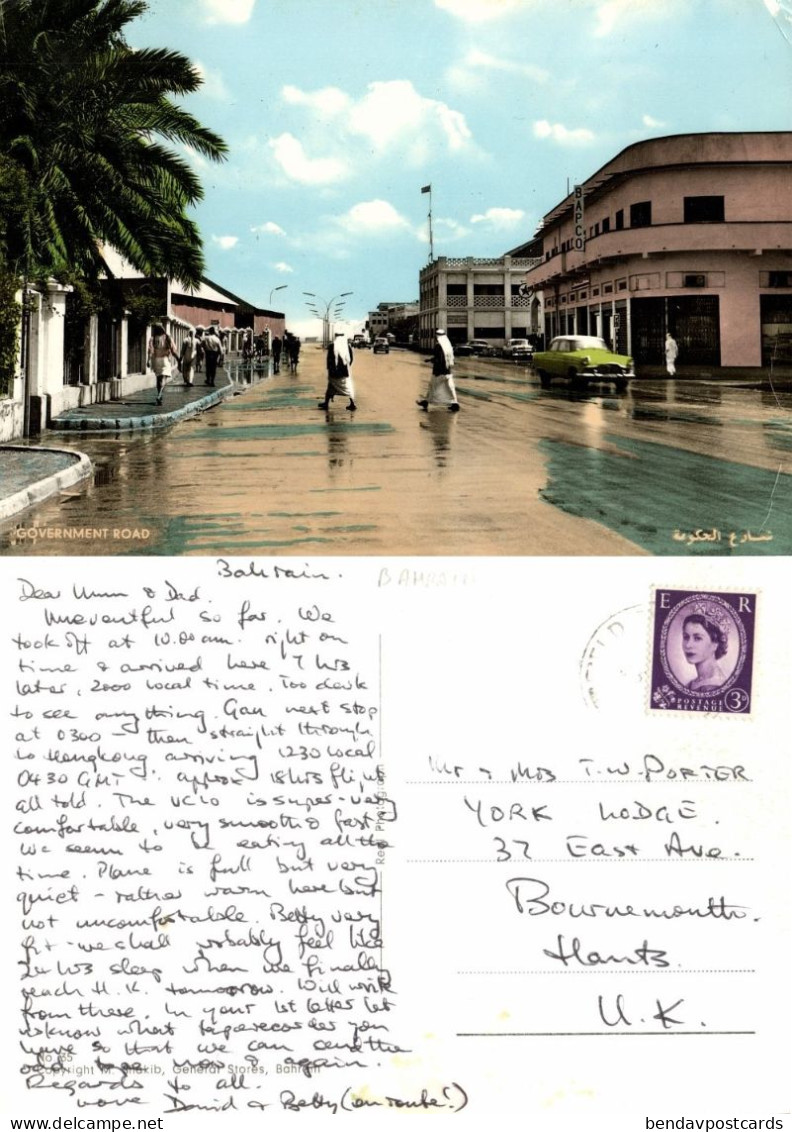 BAPCO
GOVERNMENT ROAD
شارع الحكومة
Bahrain.
BAHRAIN
Dear Mum & Dad.
Uneventful so far. We
took off at 10.00 am. right on
time & arrived here 7 hrs
later, 2000 local time. Too dark
to see anything. Gan next stop
at 0300 - then straight through
to Hongkong arriving 1230 local
0430 GMT ∴ approx 18 hrs flight
all told. The VC10 is super - very
comfortable, very smooth & fast.
We seem to be eating all the
time. Plane is full but very
quiet - rather warm here but
not uncomfortable. Betty very
fit - we shall probably feel like
24 hrs sleep when we finally
reach H.K. tomorrow. Will write
from there. In your 1st letter let
us know what taperecorder you
have so that we can send the
odd tape now & again.
Regards to all.
Love David & Betty (en route!)
No 35
Copyright M. Shakib, General Stores, Bahrain
Real Photograph
E R
POSTAGE REVENUE
3D
Mr & Mrs T.W. PORTER
YORK LODGE.
37 East Ave.
Bournemouth.
Hants.
U.K.
bendavpostcards.com